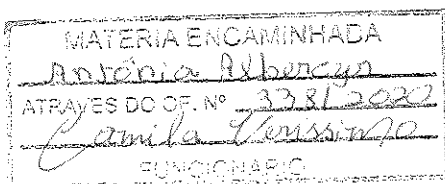 MATERIA ENCAMINHADA
Antônia
ATRAVES DO OF. Nº 338/2020
Camila Verissimo
FUNCIONARIO